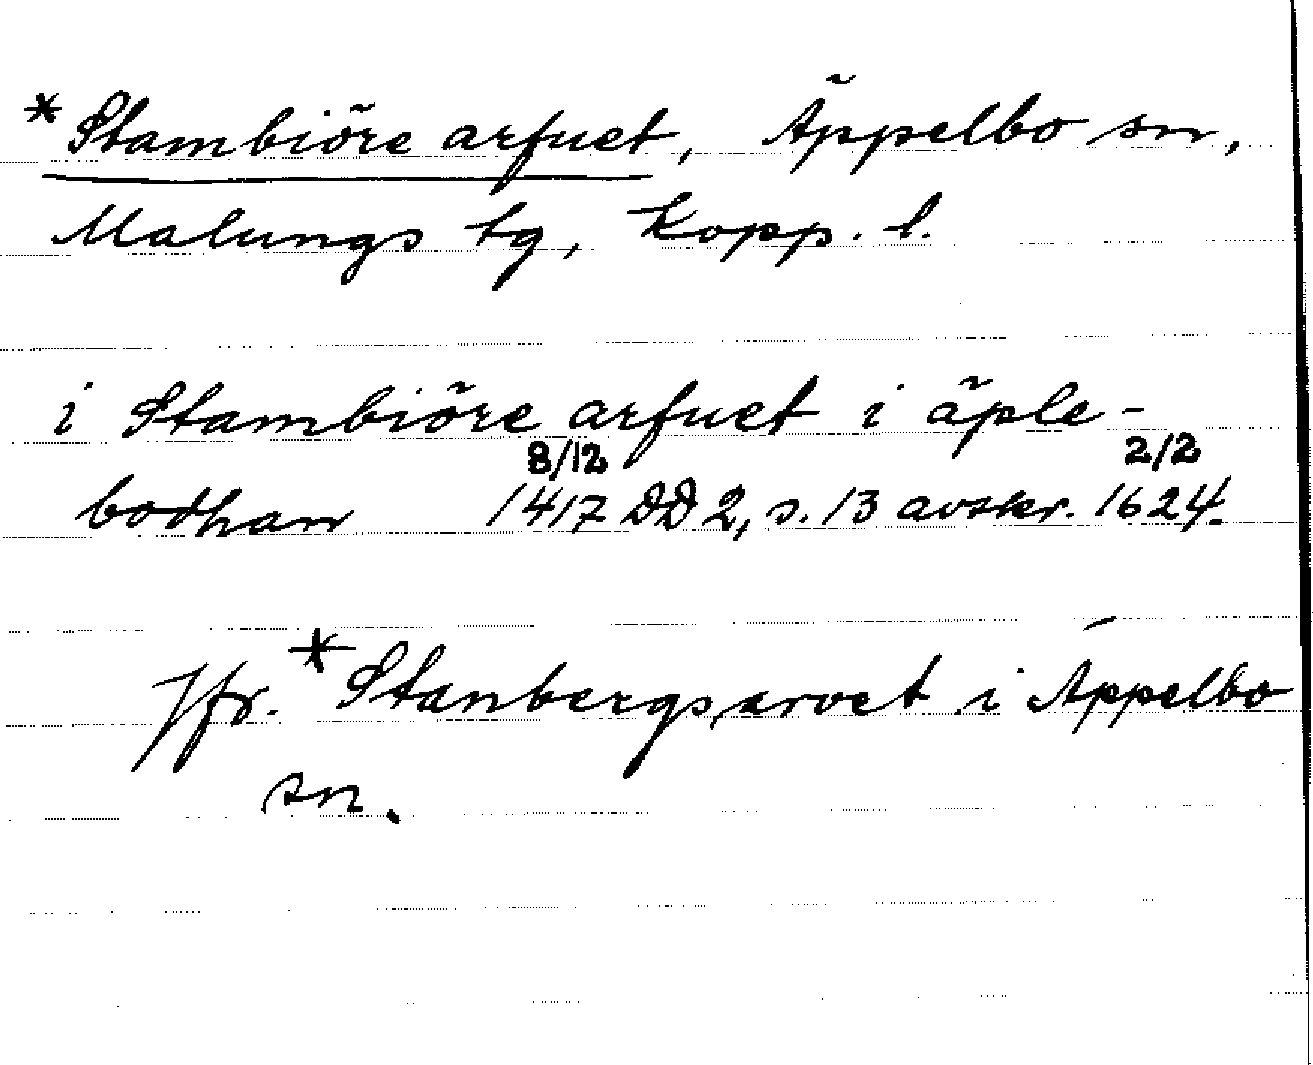 *Stambiöre arfuet, Äppelbo sn,
Malungs tg, Kopp. l.
i Stambiöre arfuet i äple-
8/12 2/2
bodhan 1417 DD 2, s. 13 avskr. 1624.
Jfr. *Stanbergsarvet i Äppelbo
sn.